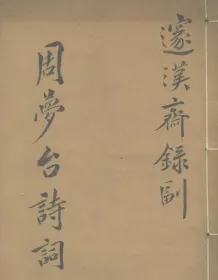 邃漢齋錄副
周夢台詩詞